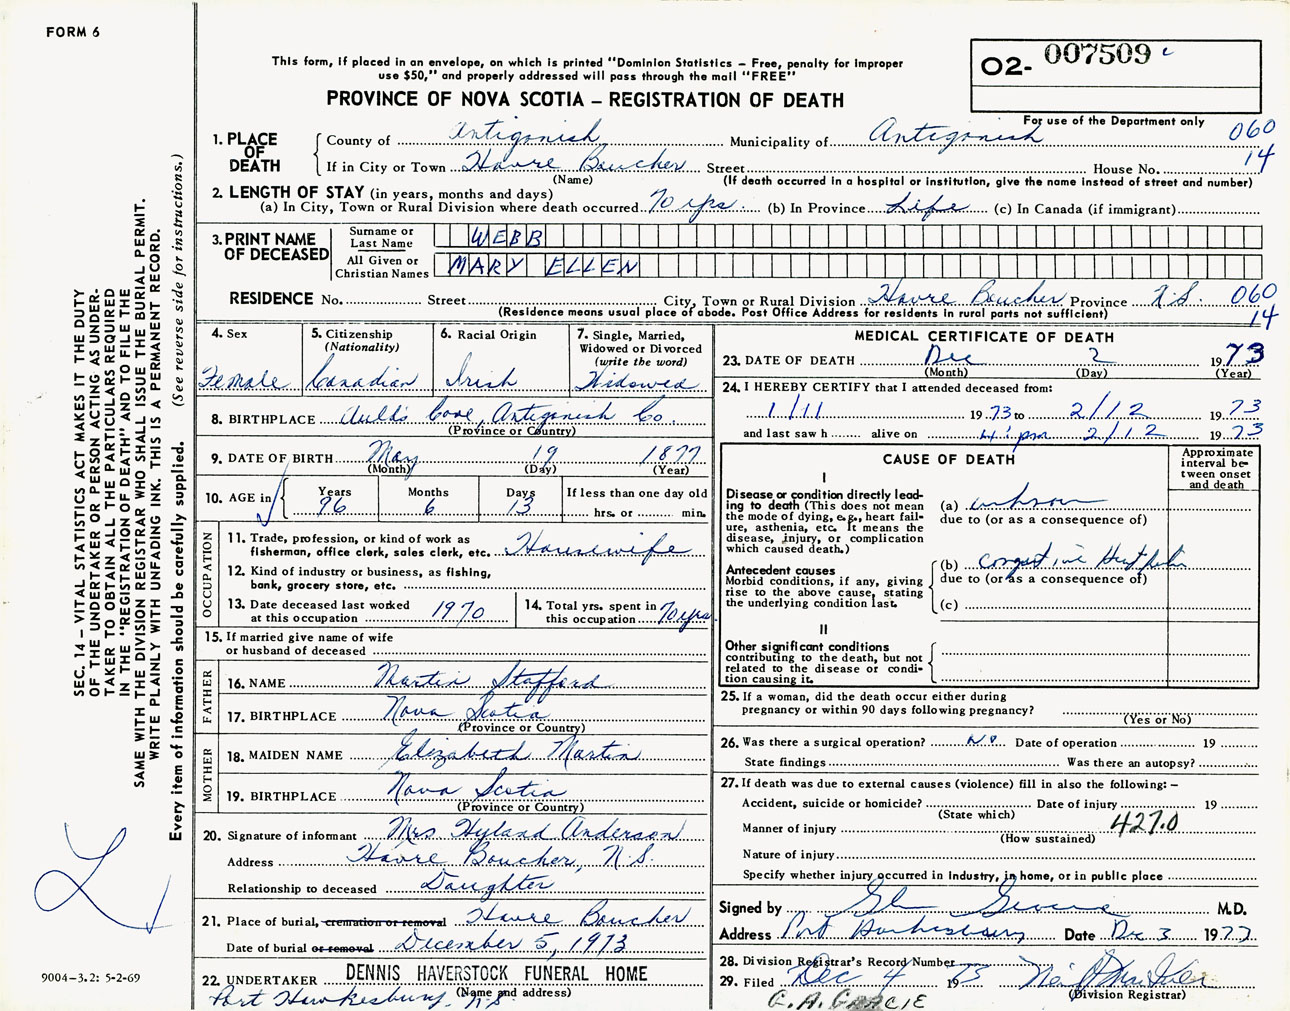 FORM 6
This form, if placed in an envelope, on which is printed "Dominion Statistics – Free, penalty for improper
use $50," and properly addressed will pass through the mail "FREE"
O2- 007509 c
For use of the Department only
PROVINCE OF NOVA SCOTIA – REGISTRATION OF DEATH
1. PLACE OF DEATH County of Antigonish Municipality of Antigonish 060
If in City or Town Havre Boucher Street House No. 14
(Name) (If death occurred in a hospital or institution, give the name instead of street and number)
2. LENGTH OF STAY (in years, months and days)
(a) In City, Town or Rural Division where death occurred 70 yrs. (b) In Province Life (c) In Canada (if immigrant)
3. PRINT NAME OF DECEASED
Surname or Last Name WEBB
All Given or Christian Names MARY ELLEN
RESIDENCE No. Street City, Town or Rural Division Havre Boucher Province N.S. 060
(Residence means usual place of abode. Post Office Address for residents in rural parts not sufficient) 14
4. Sex
Female
5. Citizenship
(Nationality)
Canadian
6. Racial Origin
Irish
7. Single, Married,
Widowed or Divorced
(write the word)
Widowed
8. BIRTHPLACE Auld's Cove, Antigonish Co.
(Province or Country)
9. DATE OF BIRTH May 19 1877
(Month) (Day) (Year)
10. AGE in Years Months Days If less than one day old
96 6 13 hrs. or min.
OCCUPATION
11. Trade, profession, or kind of work as
fisherman, office clerk, sales clerk, etc. Housewife
12. Kind of industry or business, as fishing,
bank, grocery store, etc.
13. Date deceased last worked
at this occupation 1970
14. Total yrs. spent in
this occupation 70 yrs
15. If married give name of wife
or husband of deceased
FATHER
16. NAME Martin Stafford
17. BIRTHPLACE Nova Scotia
(Province or Country)
MOTHER
18. MAIDEN NAME Elizabeth Martin
19. BIRTHPLACE Nova Scotia
(Province or Country)
20. Signature of informant Mrs Hyland Anderson
Address Havre Boucher, N.S.
Relationship to deceased Daughter
21. Place of burial, cremation or removal Havre Boucher
Date of burial or removal December 5, 1973
22. UNDERTAKER DENNIS HAVERSTOCK FUNERAL HOME
(Name and address)
Port Hawkesbury, N.S
MEDICAL CERTIFICATE OF DEATH
23. DATE OF DEATH Dec 2 1973
(Month) (Day) (Year)
24. I HEREBY CERTIFY that I attended deceased from:
1/11 1973 to 2/12 1973
and last saw h alive on pm 2/12 1973
CAUSE OF DEATH
Approximate
interval be-
tween onset
and death
I
Disease or condition directly lead-
ing to death (This does not mean
the mode of dying, e.g., heart fail-
ure, asthenia, etc. It means the
disease, injury, or complication
which caused death.)
(a)
due to (or as a consequence of)
Antecedent causes
Morbid conditions, if any, giving
rise to the above cause, stating
the underlying condition last.
(b) congestive
due to (or as a consequence of)
(c)
II
Other significant conditions
contributing to the death, but not
related to the disease or condi-
tion causing it.
25. If a woman, did the death occur either during
pregnancy or within 90 days following pregnancy?
(Yes or No)
26. Was there a surgical operation? No Date of operation 19
State findings Was there an autopsy?
27. If death was due to external causes (violence) fill in also the following: –
Accident, suicide or homicide? Date of injury 19
(State which)
Manner of injury 427.0
(How sustained)
Nature of injury
Specify whether injury occurred in industry, in home, or in public place
Signed by M.D.
Address Port Hawkesbury Date Dec 3 1977
28. Division Registrar's Record Number
29. Filed Dec 4 1973
(Division Registrar)
C. A. GRACIE
SEC. 14 – VITAL STATISTICS ACT MAKES IT THE DUTY
OF THE UNDERTAKER OR PERSON ACTING AS UNDER-
TAKER TO OBTAIN ALL THE PARTICULARS REQUIRED
IN THE "REGISTRATION OF DEATH" AND TO FILE THE
SAME WITH THE DIVISION REGISTRAR WHO SHALL ISSUE THE BURIAL PERMIT.
WRITE PLAINLY WITH UNFADING INK. THIS IS A PERMANENT RECORD.
Every item of information should be carefully supplied. (See reverse side for instructions.)
9004-3.2: 5-2-69